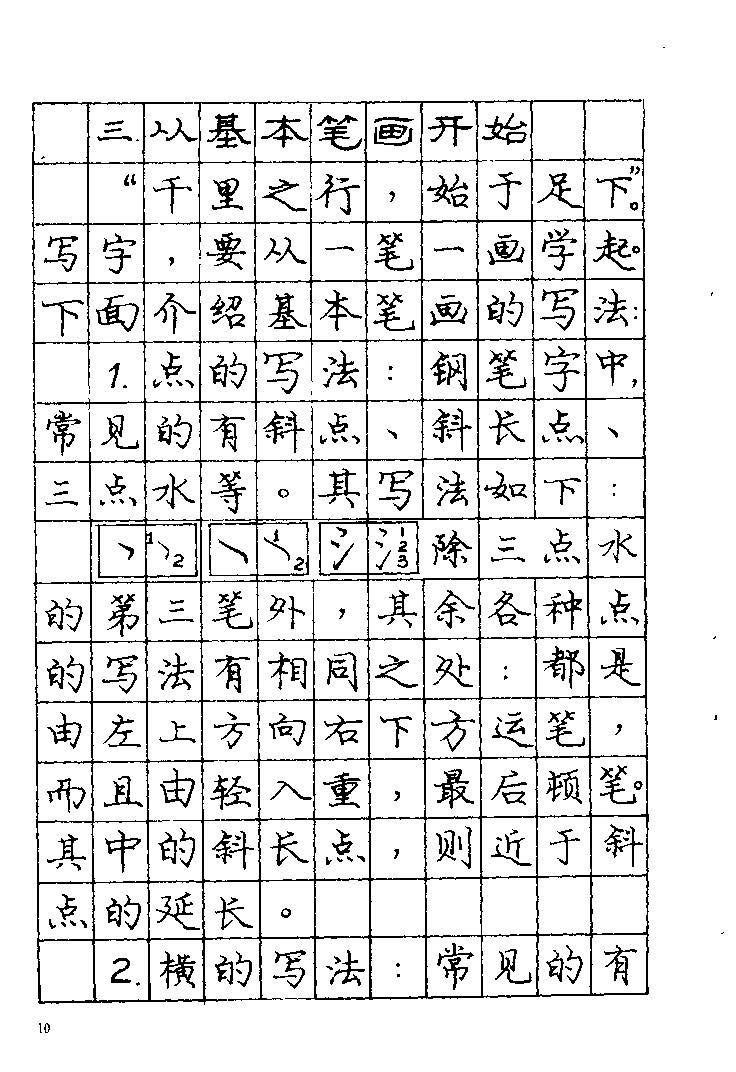 三.从基本笔画开始
“千里之行，始于足下”。
写字，要从一笔一画学起。
下面介绍基本笔画的写法：
1.点的写法：钢笔字中，
常见的有斜点、斜长点、
三点水等。其写法如下：
丶 1 2 ㇏ 1 2 氵 氵 1 2 3 除三点水
的第三笔外，其余各种点
的写法有相同之处：都是
由左上方向右下方运笔，
而且由轻入重，最后顿笔。
其中的斜长点，则近于斜
点的延长。
2.横的写法：常见的有
10